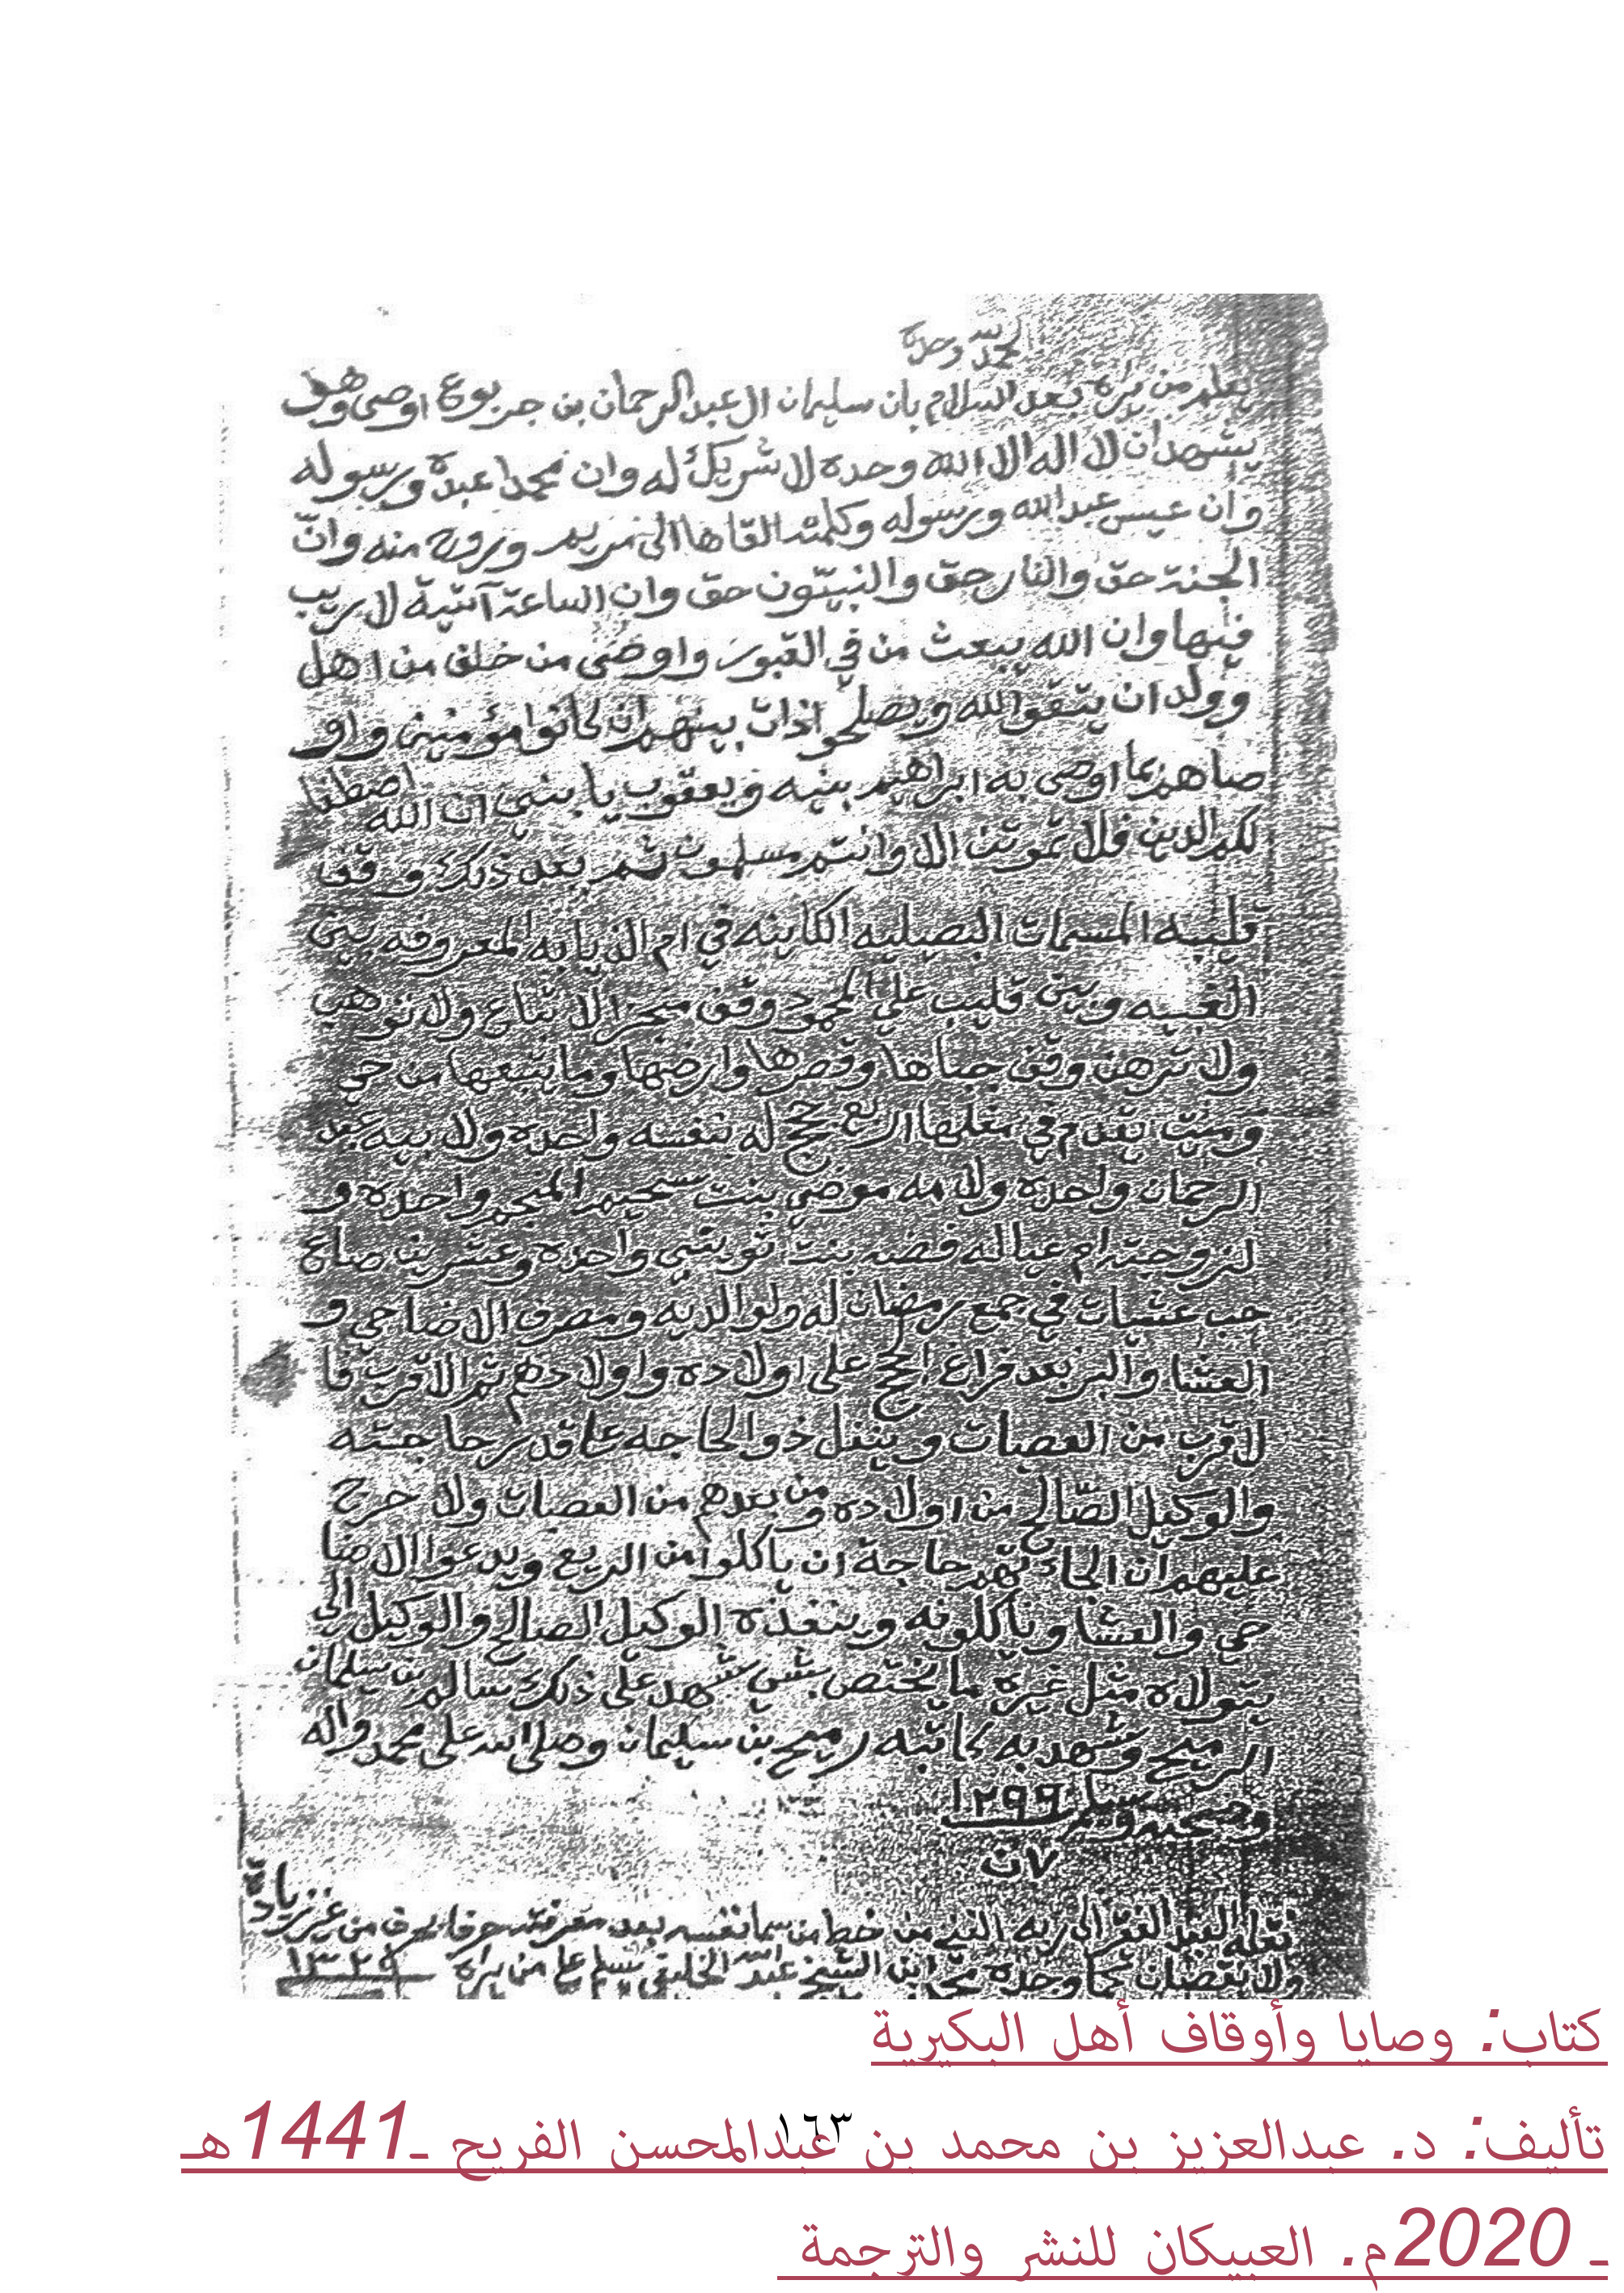 الحمد لله وحده
يعلم من يراه بعد السلام بان سليمان ال عبد الرحمان بن جربوع اوصى وهو
يشهد ان لا اله الا الله وحده لا شريك له وان محمدا عبده ورسوله
وان عيسى عبد الله ورسوله وكلمته القاها الى مريم وروح منه وانّ
الجنة حق والنار حق والنبيّون حق وان الساعة آتية لا ريب
فيها وان الله يبعث من في القبور واوصى من خلف من اهل
وولد ان يتقو الله ويصلحو اذات بينهم ان كانوا مؤمنين واو
صاهم بما اوصى به ابراهيم بنيه ويعقوب يا بني ان الله اصطفا
لكم الدين فلا تموتن الا وانتم مسلمون ثم بعد ذلك وقف
قليبه المسمات البصيليه الكاينه في ام الذيابه المعروفه بين
الغبيه وبين قليب علي المحمود وقف منجز الا تباع ولا توهب
ولا ترهن وقف جباها وقصرها وارضها وما يتبعها من حي
وميت يقدم في مغلها اربع حجج له بنفسه واحده ولابيه عبد
الرحمان واحده ولامه موضي بنت سحيم المنجم واحده و
لزوجته ام عياله فضه بنت واحده وعشرين صاع
حب عشيات في جمع رمضان له ولوالديه ومصرف الاضاحي و
العشا والبر بعد فراغ الحج على اولاده واولادهم ثم الاقرب فا
لاقرب من العصبات وينفل ذو الحاجه على قدر حاجته
والوكيل الصّالح من اولاده ومن بعدهم من العصبات ولا حرج
عليهم ان الجاتهم حاجة ان ياكلوا من الريع ويدعوا الاضا
حي والعشا وياكلونه وينفذه الوكيل الصالح والوكيل الى
يتولاه مثل غيره ما يختص بشي شهد على ذلك سالم بن سليمان
الرميح وشهد به كاتبه رميح بن سليمان وصلى الله على محمد واله
وصحبه وسلم ١٢٩٩
٧ ن
نقله العبد الفقير الى ربه الغني من خط من سما نفسه بعد معرفته حرفا بحرف من غير زيادة
ولا نقصان كما وجده محمد ابن الشيخ عبد الله الخليفي يسلم على من يراه ١٣٢٩
كتاب: وصايا وأوقاف أهل البكيرية
١٦٣
تأليف: د. عبدالعزيز بن محمد بن عبدالمحسن الفريح ـ1441هـ
ـ 2020م. العبيكان للنشر والترجمة